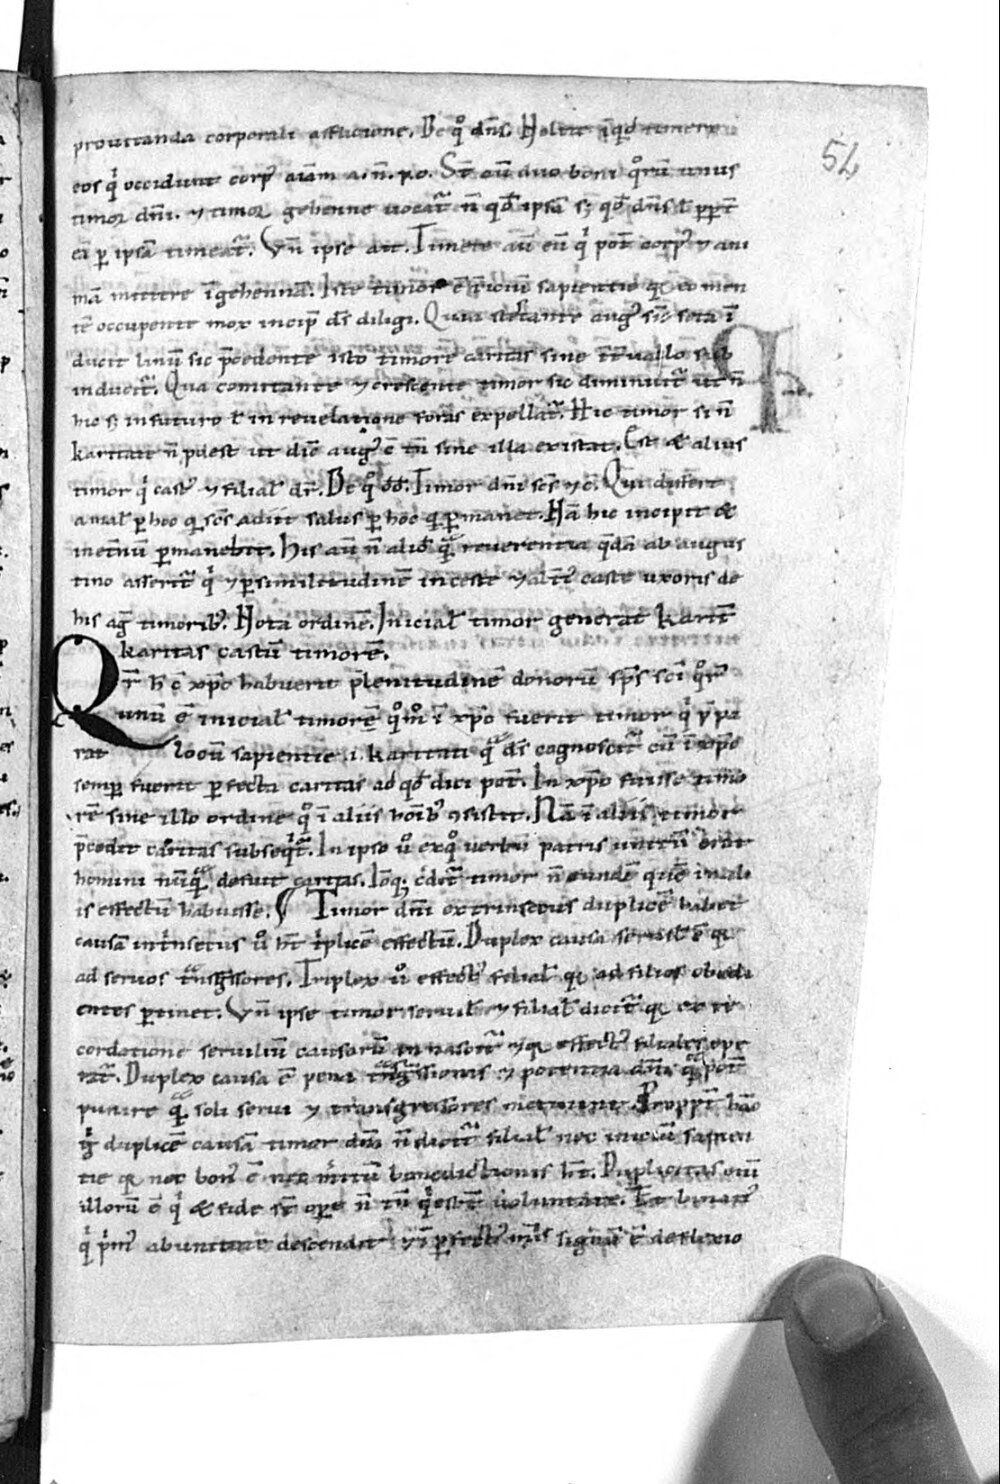 54
prouitanda corporali afflictione. De qͦ dn̄s. Nolite inqid timere
eos q̍ occidunt corpꝰ aīam a. n̄. po. St̄ aū duo boni qͦrū unus
timor dn̄i. ⁊ timor gehenne uocat᷑ n̄ qd̄ ipsa s; qd̄ dn̄s
ei ꝑ ipsā timeat᷑. Vn̄ ipse ait. Timete aū eū q̍ pot̄ corpꝰ ⁊ ani
mā mittere ī gehennā. Iste timor ē īiciū sapientie qꝛ eo men
tē occupante mox incip̄ ds̄ diligi. Quia ut seta ī
ducit linū sic p̄cedente isto timore caritas sine īt̄uallo sub
inducit᷑. Qua comitante ⁊ crescente timor sic diminuit᷑ ut n̄
hic s; in futuro ł in reuelatione foras expellat᷑. Hic timor si n̄
karitati n̄ pdest ut diē augꝰ ē tn̄ sine illa existat. Est et alius
timor q̍ castꝰ ⁊ filial̄ dr̄. De qͦ dd̄. Timor dn̄i scs̄ ⁊c̄. Qui differt
a mal̄ ꝑ hoc qꝛ scs̄ aditi salus ꝑ hoc qꝛ ꝑmanet. Nā hic incipit et
inet̄nū ꝑmanebit. Hic aū n̄ aliud quā reuerentia q̄dā ab augus
tino asserit᷑ q̍ ⁊ ꝑ similitudinē inceste ⁊ alti caste uxoris de
his aḡ timoribꝰ. Nota ordinē. Inicial̄ timor generat karit̄
karitas castū timorē.
Qr̄ h̄ ē xp̄c habuerit plenitudinē donorū sps̄ sc̄i qͦr᷑
unū ē inicial̄ timorē qͦm̊ ī xp̄o fuerit timor q̍ p̄pa
rat locū sapientie .i. karitati qᵃ ds̄ cognoscit᷑ cū ī xp̄o
semꝑ fuerit ꝑfecta caritas ad qd̄ dici pot̄. In xp̄o fuisse timo
rē sine illo ordine qͦ ī aliis hoībꝰ ꝯsistit. Nā ī aliis timor
p̄cedit caritas subseq̍t᷑. In ipso ů ex qͦ uerbū patris unitū erat
homini nūq̄ᵃ defuit caritas. Iō q; cr̄dit᷑ timor n̄ eundē quē in ali
is effectū habuisse. Timor dn̄i extrinsecus duplicē habet
causā intrinsecus ů h̄t t̍plicē effectū. Duplex causa seruil̄ ē qꝛ
ad seruos tᵃnsgressores. Triplex ů effectꝰ filial̄ qꝛ ad filios obedi
entes ꝑtinet. Vn̄ ipse timor seruil̄ ⁊ filial̄ dicit᷑ qꝛ ex re
cordatione seruiliū causarū nascit᷑ ⁊ qꝛ effectꝰ filiales ope
rat᷑. Duplex causa ē pena tᵃnsgᵃssionis ⁊ potentia dn̄i qᵃ pot̄
punire qᵃ soli serui ⁊ transgressores metuunt. Propt̄ hāc
g̍ duplicē causā timor dn̄i n̄ dicit᷑ filial̄ nec iniciū sapien
tie qꝛ nec bonꝰ ē nec m̄itū benedictionis h̄t. Duplicitas enī
illorū ē q̍ et fide st̄ opere n̄ tn̄ uoluntate. Et binariꝰ
q̍ p̍mꝰ ab unitate descendit ⁊ īꝑfectꝰ signū ē deflexio